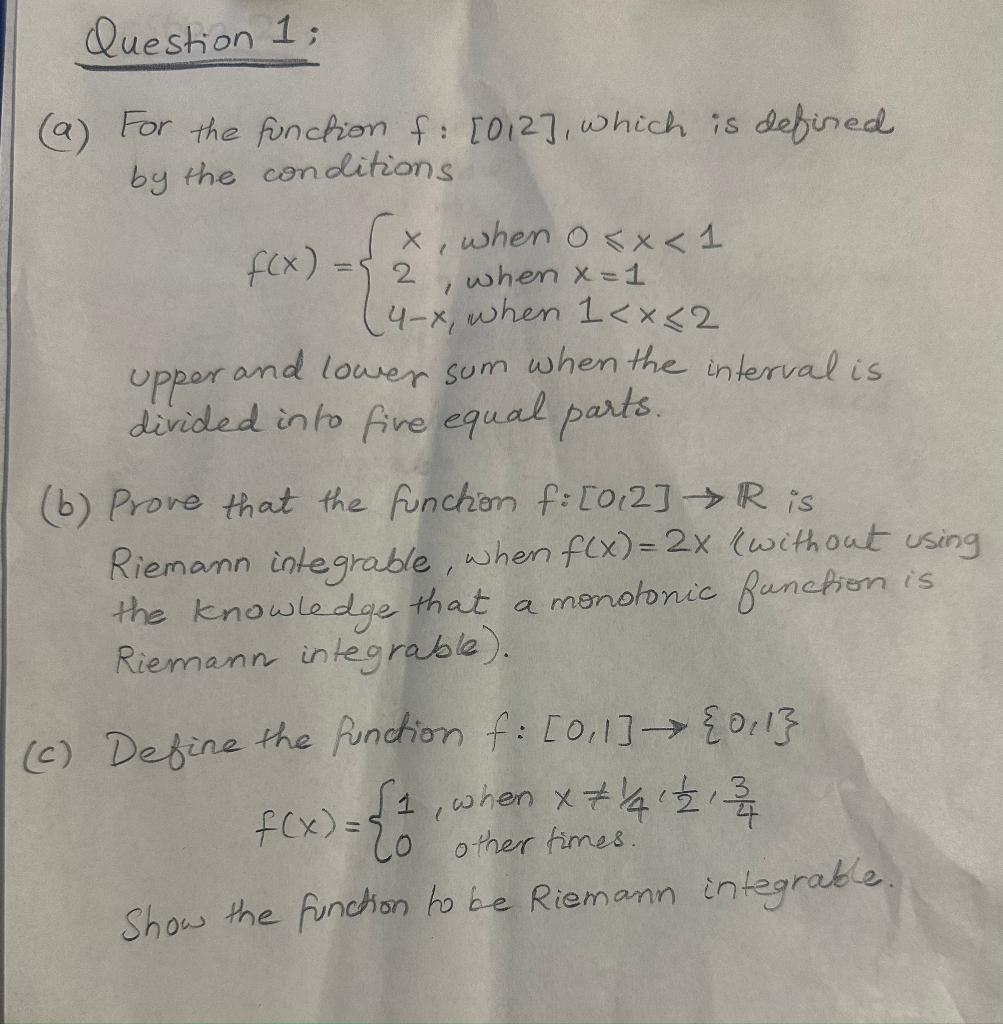 Question 1:
(a) For the function f: [0,2], which is defined
by the conditions
f(x) = { x, when 0 ≤ x < 1
2, when x = 1
4-x, when 1 < x ≤ 2
upper and lower sum when the interval is
divided into five equal parts.
(b) Prove that the function f: [0,2] → ℝ is
Riemann integrable, when f(x) = 2x (without using
the knowledge that a monotonic function is
Riemann integrable).
(c) Define the function f: [0,1] → {0,1}
f(x) = { 1, when x ≠ 1/4, 1/2, 3/4
0 other times.
Show the function to be Riemann integrable.